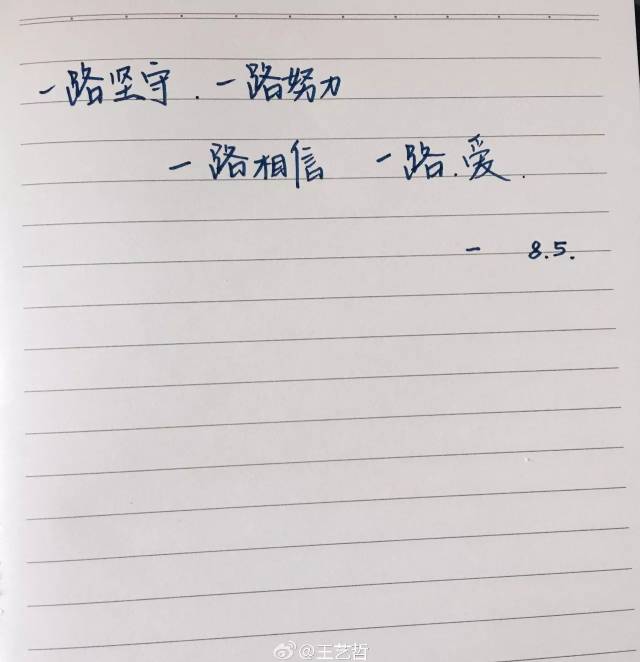 一路坚守.一路努力
一路相信 一路.爱.
- 8.5.
@王艺哲